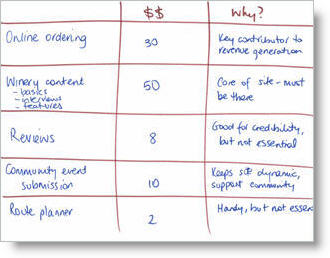 $$ Why?
Online ordering 30 Key contributor to
revenue generation
Winery content 50 Core of site - must
- basics be there
- interviews
- features
Reviews 8 Good for credibility,
but not essential
Community event 10 Keeps site dynamic,
submission support community
Route planner 2 Handy, but not essen